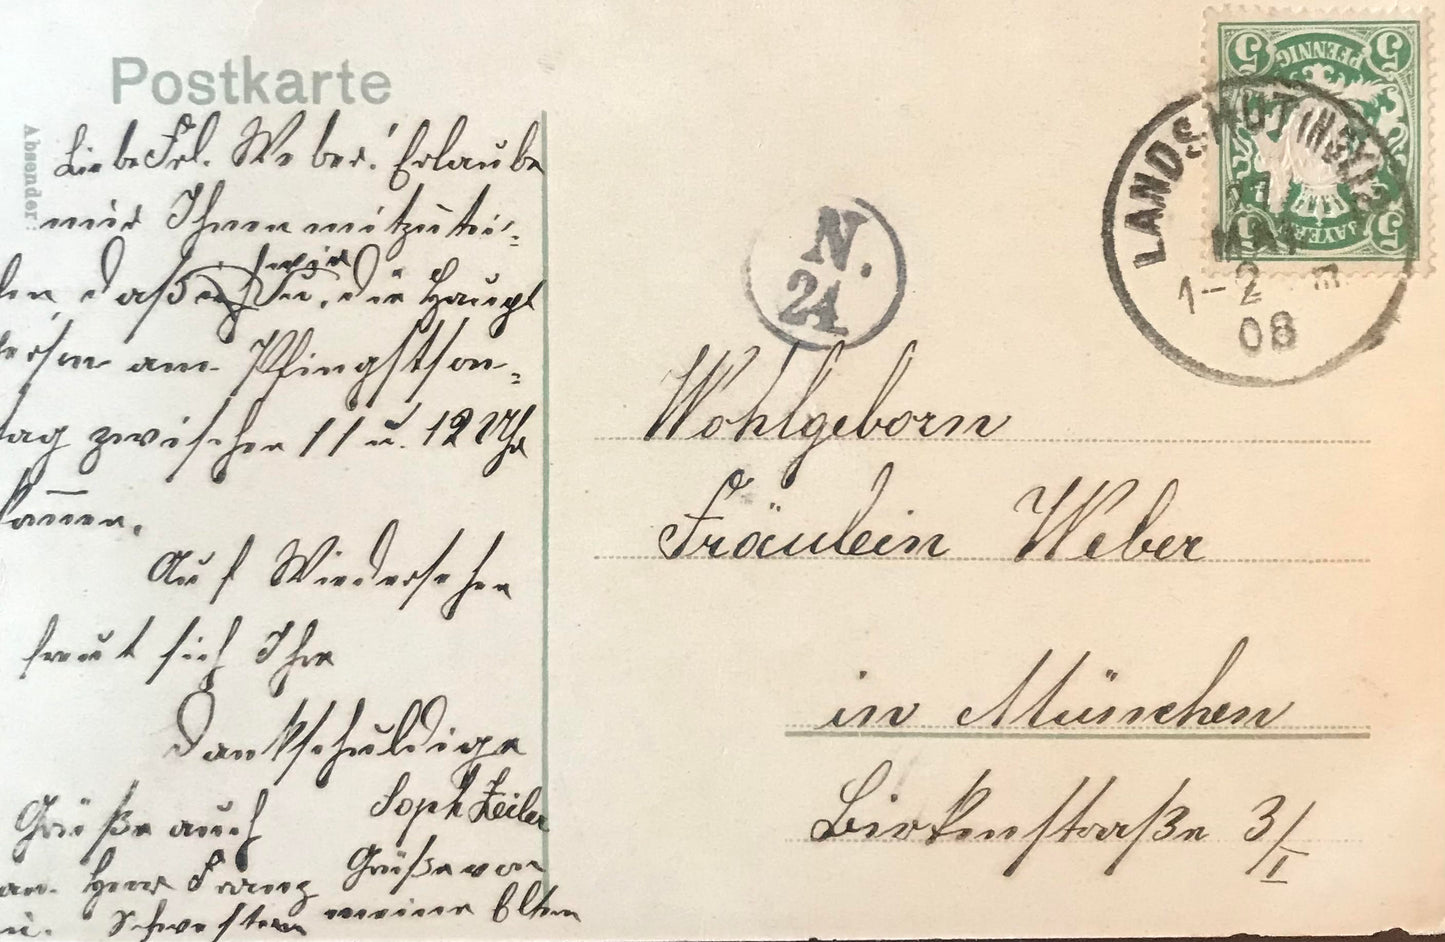 Postkarte
Absender:
Liebe Frl. Weber! Erlaube
mir Ihnen mitzutei=
len daß wir, die Haupt
am Pfingstson=
tag zwischen 11 u. 12 Uhr
kom̅en.
Auf Wiedersehen
freut sich Ihre
Dankschuldige
Soph Zeiler
Grüße auch
an Herr Franz
u. Schwestern
Grüße von
meine Eltern
5 PFENNIG 5
5 BAYERN 5
LANDSHUT
MAI
1-2
08
N.
24
Wohlgeborn
Fräulein Weber
in München
Birkenstraße 3/I